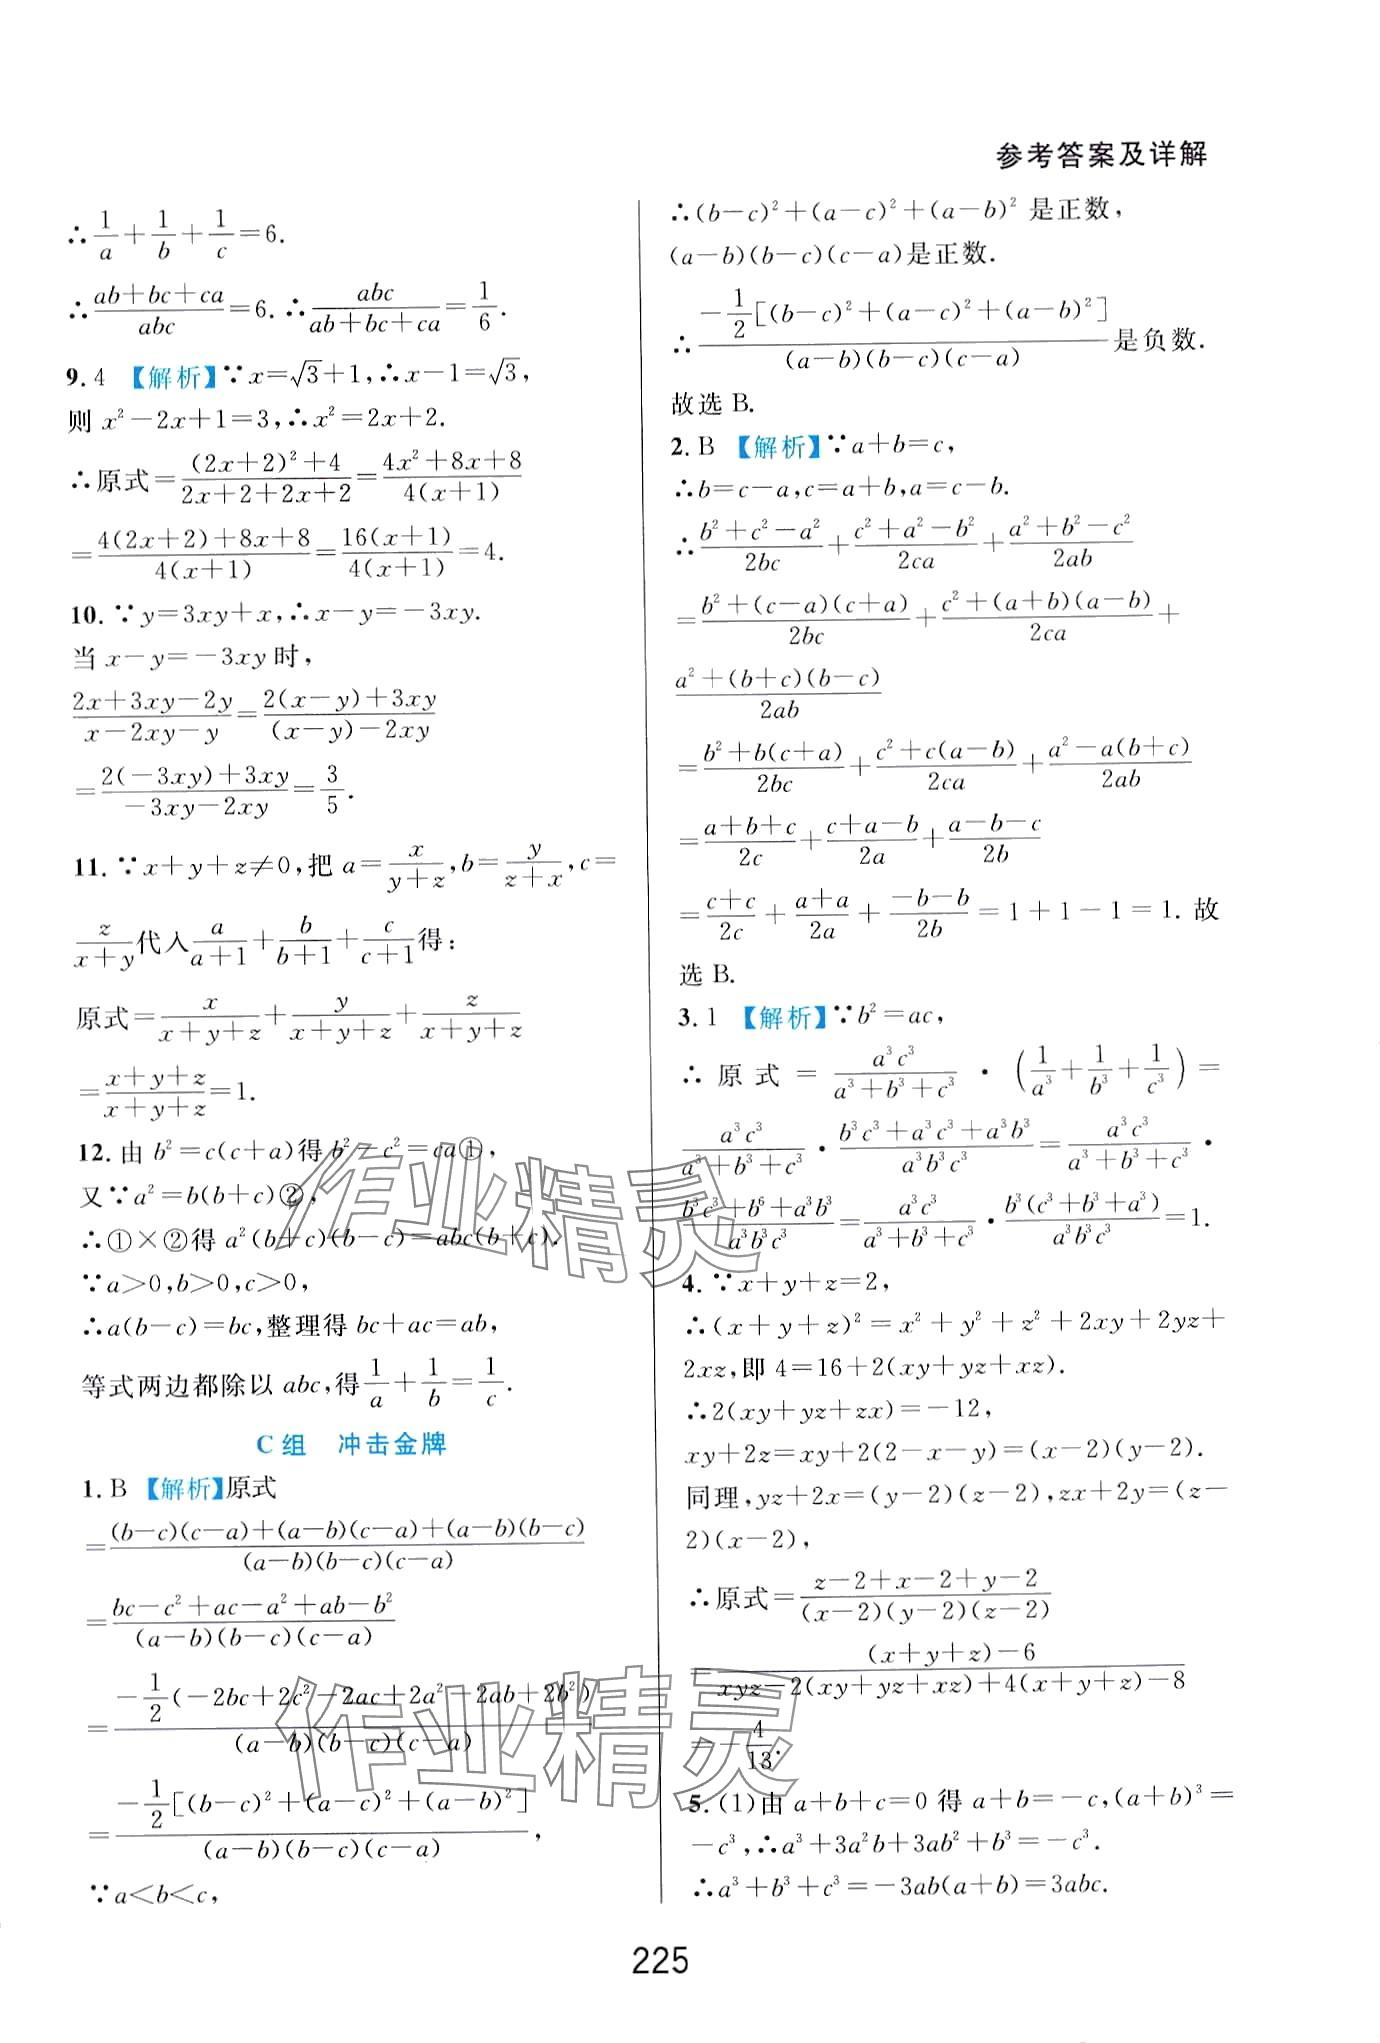 参考答案及详解
∴1/a+1/b+1/c=6.
∴(ab+bc+ca)/abc=6.∴abc/(ab+bc+ca)=1/6.
9.4 【解析】∵x=√3+1,∴x-1=√3,
则 x²-2x+1=3,∴x²=2x+2.
∴原式=((2x+2)²+4)/(2x+2+2x+2)=(4x²+8x+8)/(4(x+1))
=(4(2x+2)+8x+8)/(4(x+1))=(16(x+1))/(4(x+1))=4.
10.∵y=3xy+x,∴x-y=-3xy.
当 x-y=-3xy 时,
(2x+3xy-2y)/(x-2xy-y)=(2(x-y)+3xy)/((x-y)-2xy)
=(2(-3xy)+3xy)/(-3xy-2xy)=3/5.
11.∵x+y+z≠0,把 a=x/(y+z),b=y/(z+x),c=
z/(x+y)代入a/(a+1)+b/(b+1)+c/(c+1)得:
原式=x/(x+y+z)+y/(x+y+z)+z/(x+y+z)
=(x+y+z)/(x+y+z)=1.
12.由 b²=c(c+a)得 b²-c²=ca①,
又∵a²=b(b+c)②,
∴①×②得 a²(b+c)(b-c)=abc(b+c).
∵a>0,b>0,c>0,
∴a(b-c)=bc,整理得 bc+ac=ab,
等式两边都除以 abc,得1/a+1/b=1/c.
C组 冲击金牌
1.B 【解析】原式
=((b-c)(c-a)+(a-b)(c-a)+(a-b)(b-c))/((a-b)(b-c)(c-a))
=(bc-c²+ac-a²+ab-b²)/((a-b)(b-c)(c-a))
=(-1/2(-2bc+2c²-2ac+2a²-2ab+2b²))/((a-b)(b-c)(c-a))
=(-1/2[(b-c)²+(a-c)²+(a-b)²])/((a-b)(b-c)(c-a)),
∵a<b<c,
∴(b-c)²+(a-c)²+(a-b)² 是正数,
(a-b)(b-c)(c-a)是正数.
∴(-1/2[(b-c)²+(a-c)²+(a-b)²])/((a-b)(b-c)(c-a))是负数.
故选 B.
2.B 【解析】∵a+b=c,
∴b=c-a,c=a+b,a=c-b.
∴(b²+c²-a²)/2bc+(c²+a²-b²)/2ca+(a²+b²-c²)/2ab
=(b²+(c-a)(c+a))/2bc+(c²+(a+b)(a-b))/2ca+
(a²+(b+c)(b-c))/2ab
=(b²+b(c+a))/2bc+(c²+c(a-b))/2ca+(a²-a(b+c))/2ab
=(a+b+c)/2c+(c+a-b)/2a+(a-b-c)/2b
=(c+c)/2c+(a+a)/2a+(-b-b)/2b=1+1-1=1.故
选 B.
3.1 【解析】∵b²=ac,
∴原式=a³c³/(a³+b³+c³)·(1/a³+1/b³+1/c³)=
a³c³/(a³+b³+c³)·(b³c³+a³c³+a³b³)/a³b³c³=a³c³/(a³+b³+c³)·
(b³c³+b⁶+a³b³)/a³b³c³=a³c³/(a³+b³+c³)·(b³(c³+b³+a³))/a³b³c³=1.
4.∵x+y+z=2,
∴(x+y+z)²=x²+y²+z²+2xy+2yz+
2xz,即 4=16+2(xy+yz+xz).
∴2(xy+yz+zx)=-12,
xy+2z=xy+2(2-x-y)=(x-2)(y-2).
同理,yz+2x=(y-2)(z-2),zx+2y=(z-
2)(x-2),
∴原式=(z-2+x-2+y-2)/((x-2)(y-2)(z-2))
=((x+y+z)-6)/(xyz-2(xy+yz+xz)+4(x+y+z)-8)
=-4/13.
5.(1)由 a+b+c=0 得 a+b=-c,(a+b)³=
-c³,∴a³+3a²b+3ab²+b³=-c³.
∴a³+b³+c³=-3ab(a+b)=3abc.
225
作业精灵
作业精灵